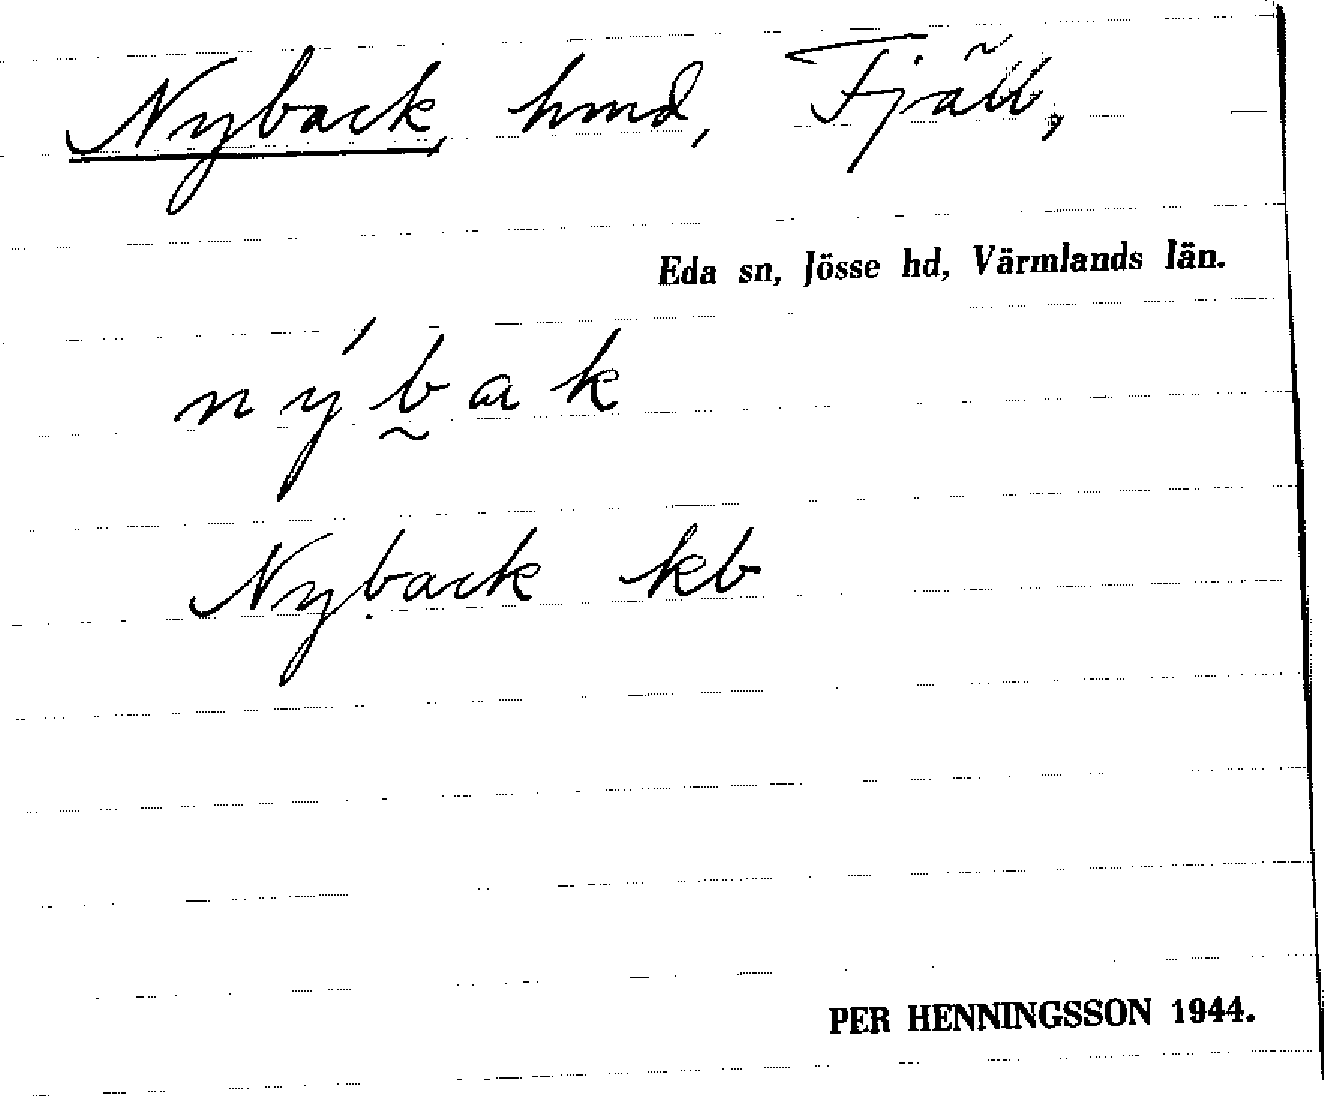 Nyback, hmd, Fjäll,
Eda sn, Jösse hd, Värmlands län.
nýb̰ak
Nyback kb
PER HENNINGSSON 1944.